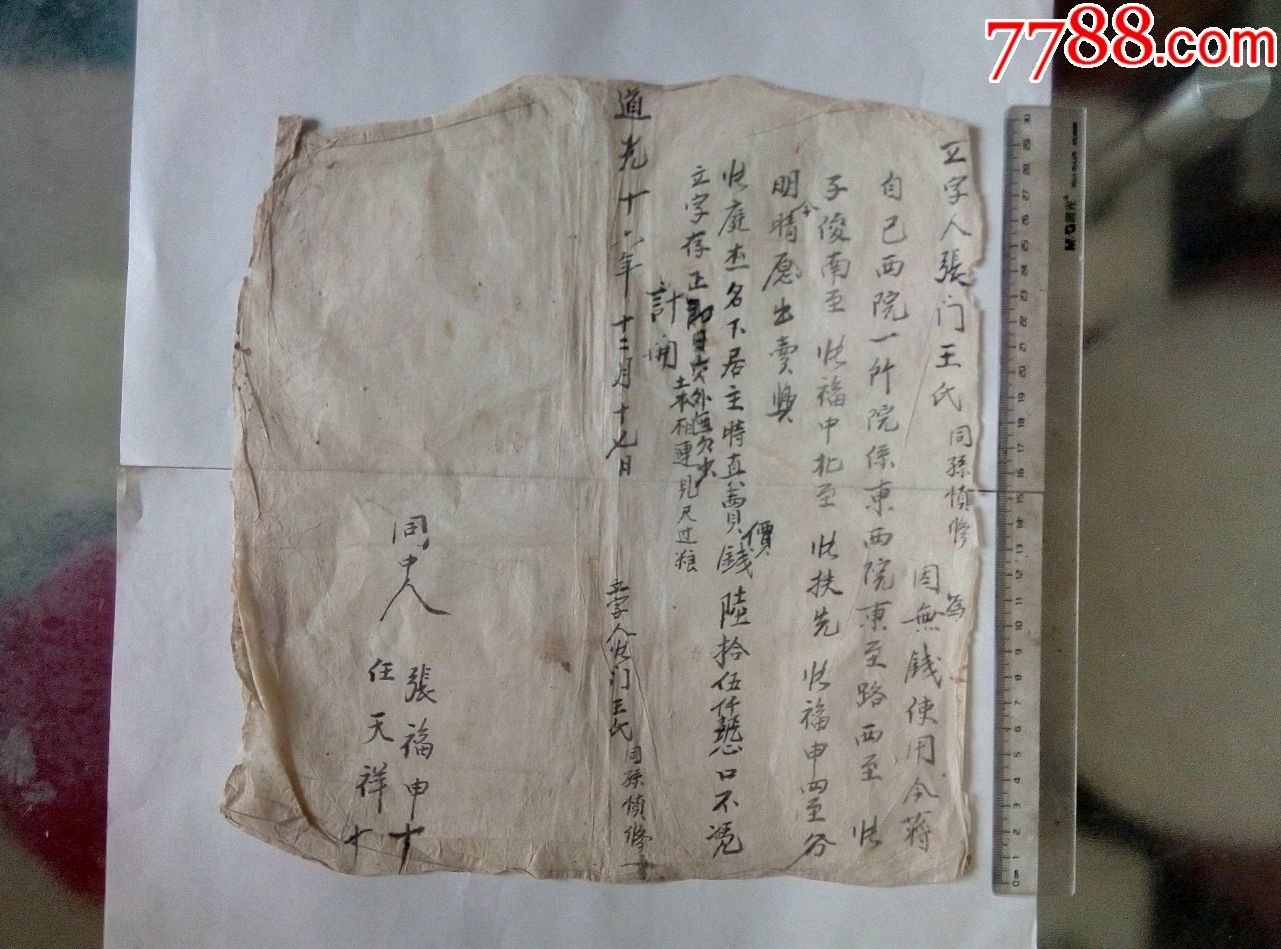 立字人張门王氏同孫慎修為
因無錢使用今蔣
自己西院一所院係東西院東至路西至张
子俊南至张福申北至张扶先张福申四至分
明今情愿出賣與
张庭杰名下居主時直賣價錢陸拾伍仟恐口不凴
立字存正即日交外無欠少
計開
土木相連見尺过粮
道光十六年十二月十七日
立字人张门王氏同孫慎修十
同中人
張福申十
任天祥十
7788.com